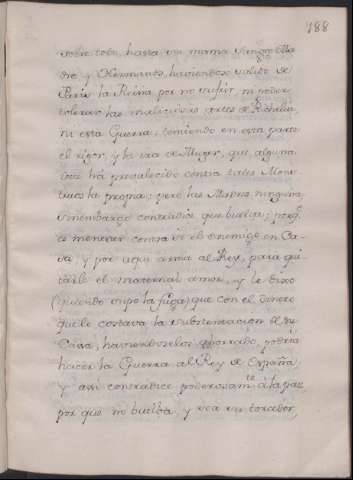 188
sobre todo, hasta su misma sangre Ma-
dre, y Hermanos, haviendose salido de
Paris la Reina por no sufrir, ni poder
tolerar las maliciosas artes de Richelieu,
ni esta Guerra; teniendo en esta parte
el rigor, y la ira de Muger, que alguna
vez há prevalecido contra tales Mons-
truos la propia; pero las Madres ninguna,
sin embargo contradice que buelva; porq.e
es meneter contra si el enemigo en Ca-
sa, y por aqui arma al Rey, para qui-
tarle el maternal amor, y le dixo
(quando supo la fuga) que con el dinero
que le costava la sustentacion de su
Casa, haviendoselos ahorrado, podria
hacer la Guerra al Rey de España,
y assi contradice poderosam.te á la paz,
por que no buelva, y sea un torcedor,